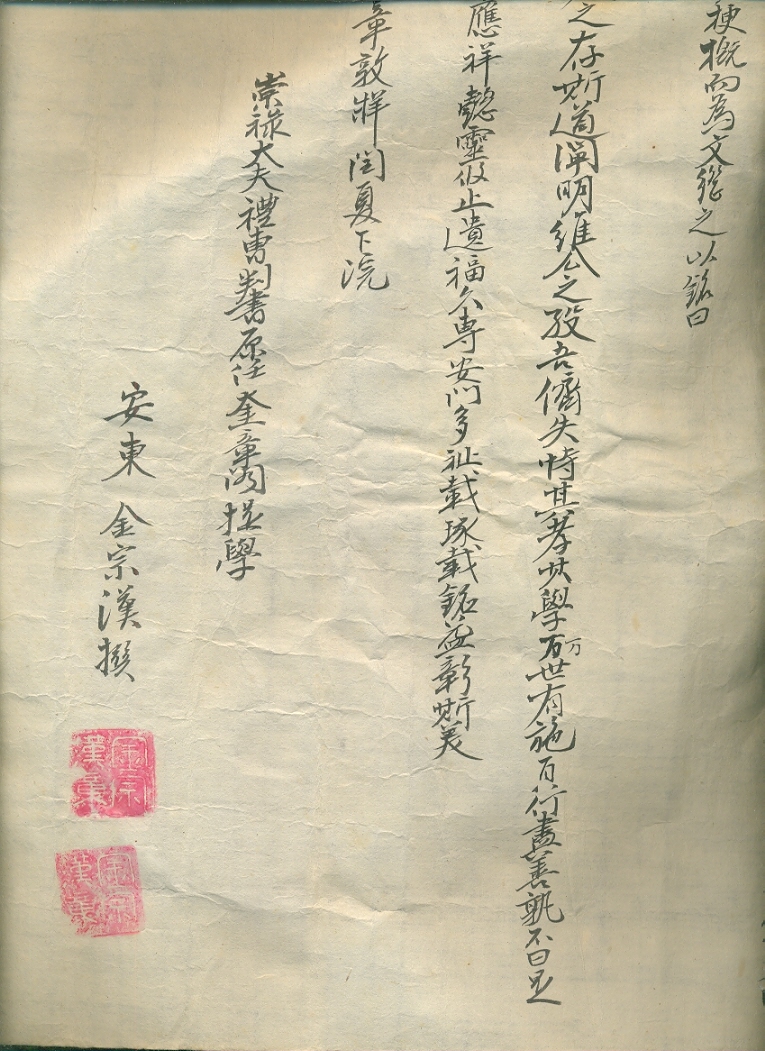 梗概而為文繼之以銘曰
之存斯道闡明維公之歿吾儕失恃其孝其學万世有施百行盡善孰不曰是
應祥懿靈攸止遺福久專安門多祉載琢載銘益彰斯美
章敦牂閏夏下浣
崇祿大夫禮曹判書原任奎章閣提學
安東金宗漢撰
金宗漢
金宗漢